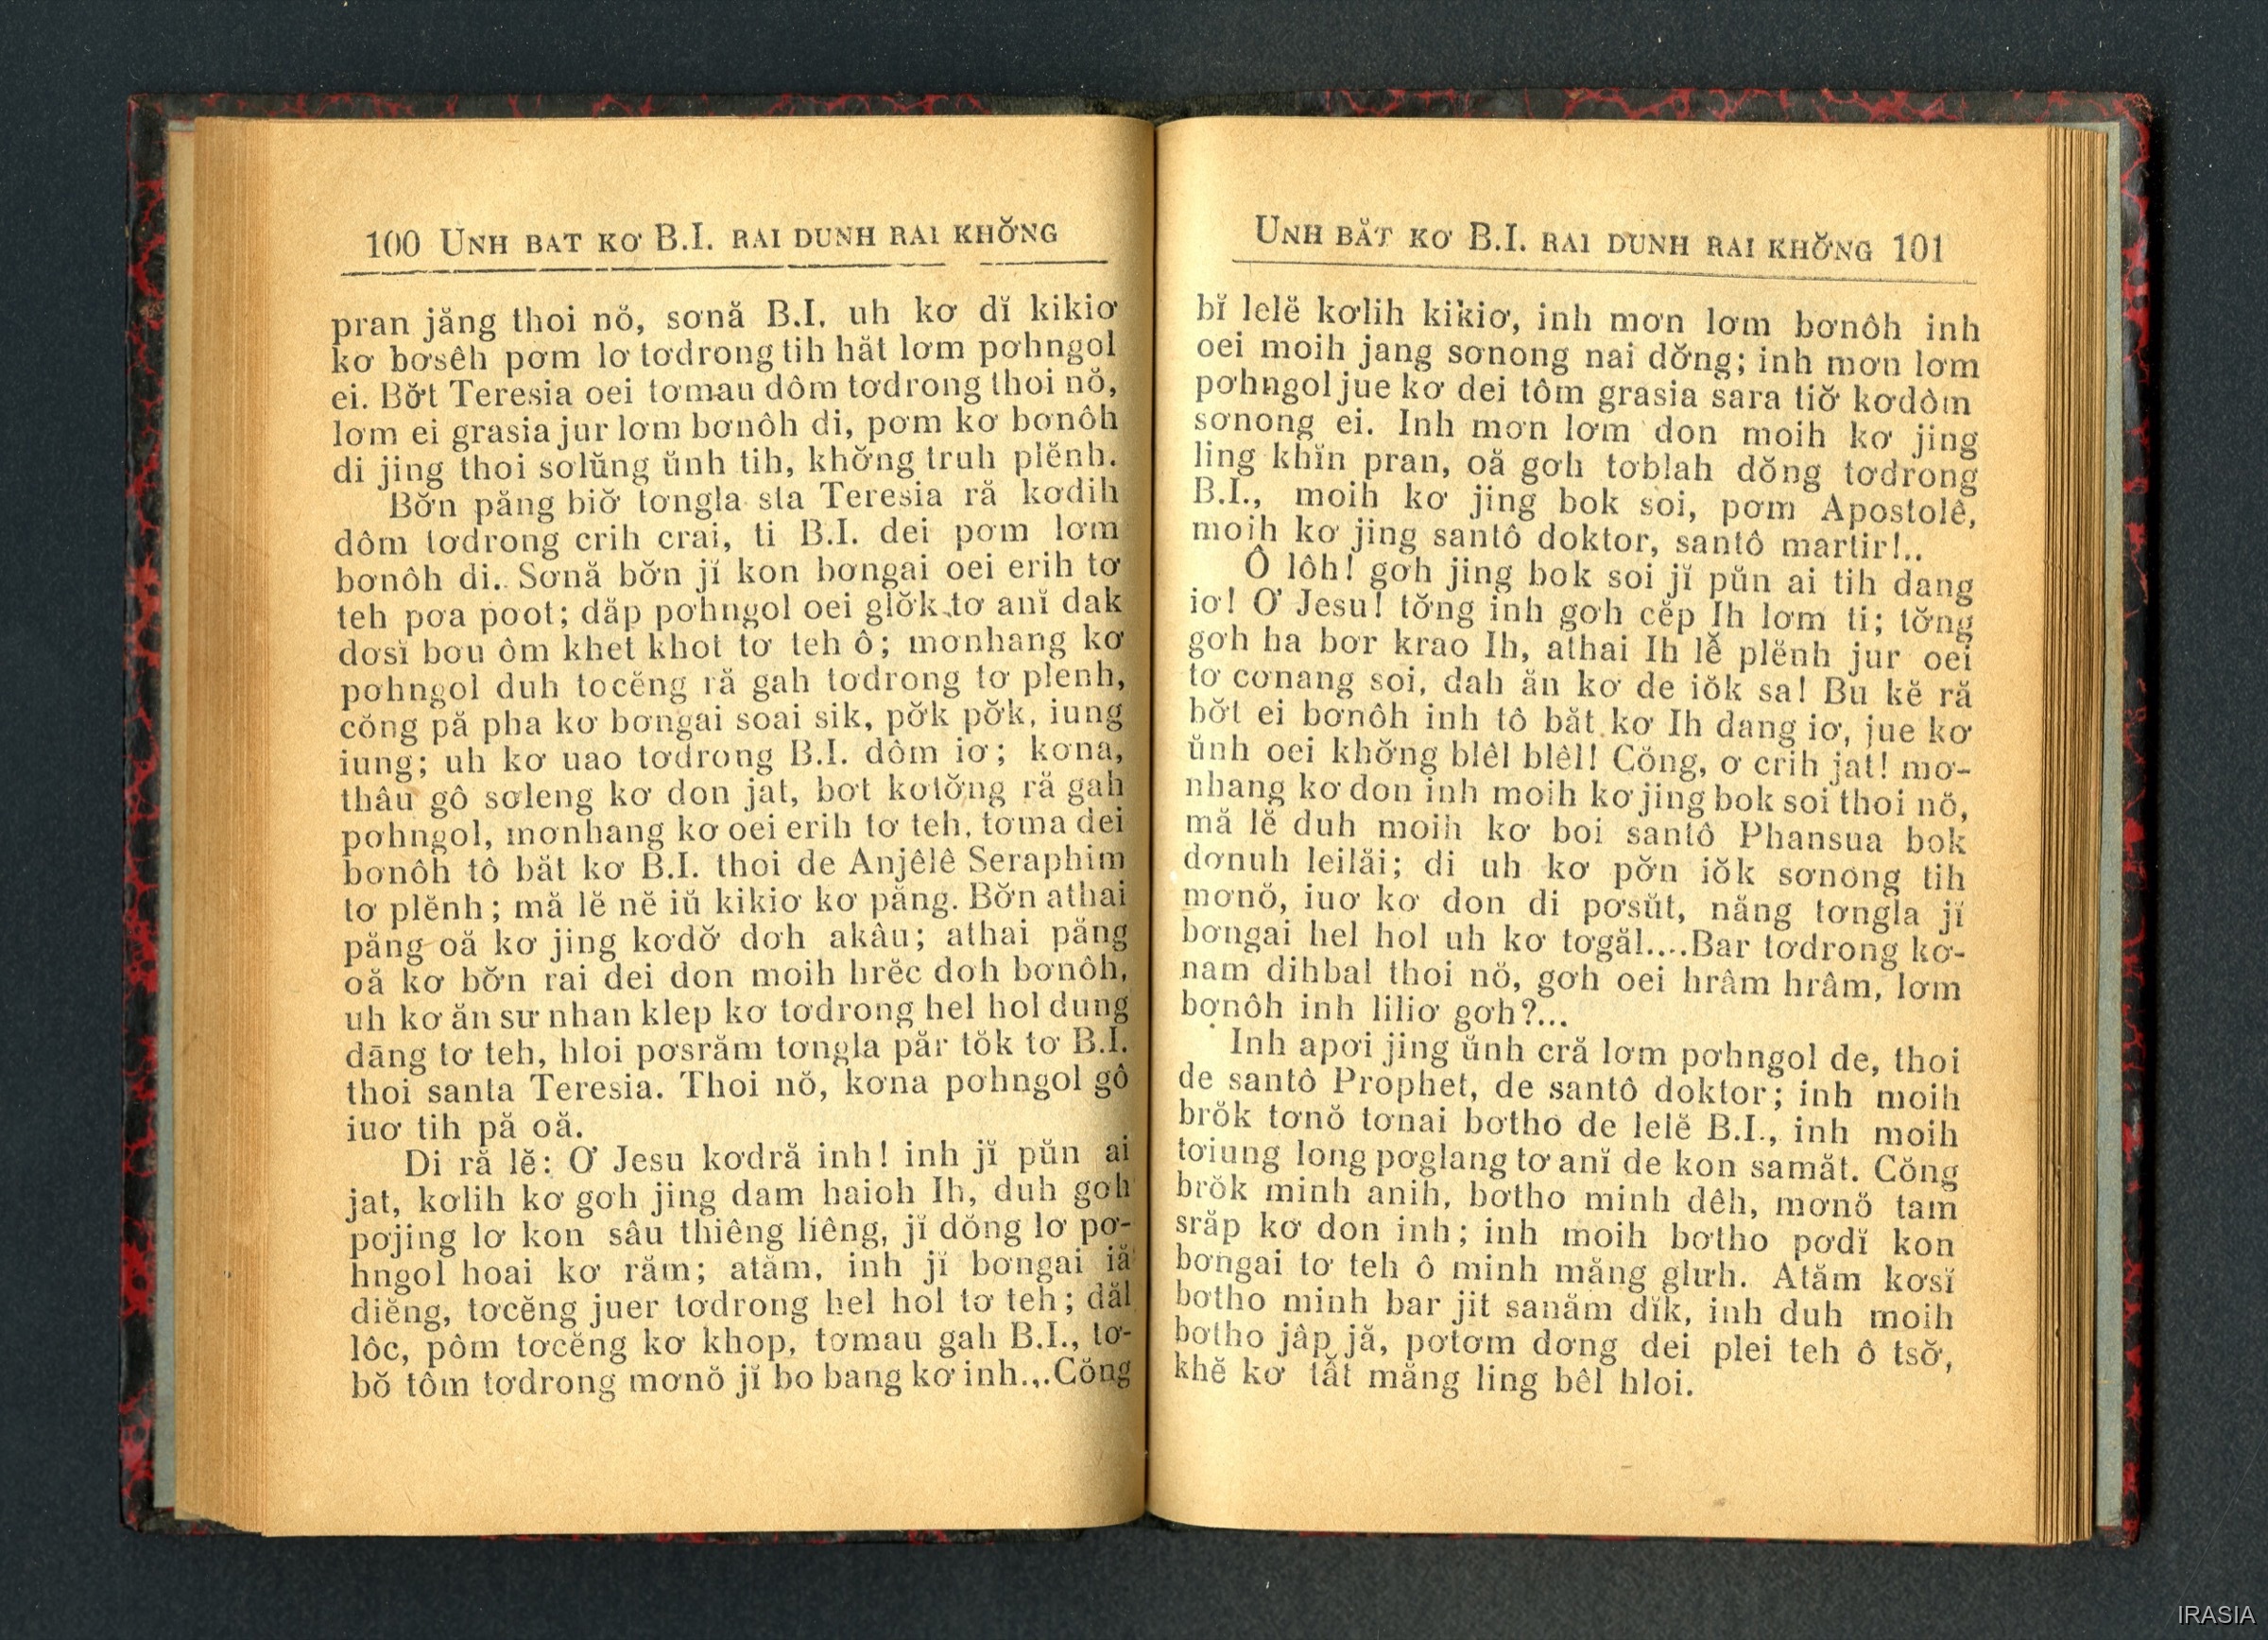 100 UNH BAT KƠ B.I. RAI DUNH RAI KHỞ̆NG
pran jăng thoi nŏ, sơnă B.I. uh kơ dĭ kikiơ
kơ bơsêh pơm lơ tơdrong tih hăt lơm pơhngol
ei. Bơ̆t Teresia oei tơmau dôm tơdrong thoi nŏ,
lơm ei grasia jur lơm bơnôh di, pơm kơ bơnôh
di jing thoi sơlŭng ŭnh tih, khơ̆ng truh plĕnh.
Bơ̆n păng biơ̆ tơngla sta Teresia ră kơdih
dôm tơdrong crih crai, ti B.I. dei pơm lơm
bơnôh di. Sơnă bơ̆n jĭ kon bơngai oei erih tơ
teh pơa poot; dăp pơhngol oei glơ̆k tơ anĭ dak
dơsĭ bơu ôm khet khot tơ teh ô; mơnhang kơ
pơhngol duh tocĕng ră gah tơdrong tơ plenh,
cŏng pă pha kơ bơngai soai sik, pơ̆k pơ̆k, iung
iung; uh kơ uao tơdrong B.I. dôm iơ; kơna,
thâu gô sơleng kơ don jat, bơt kơtơ̆ng ră gah
pơhngol, mơnhang kơ oei erih tơ teh, tơma dei
bơnôh tô băt kơ B.I. thoi de Anjêlê Seraphim
tơ plĕnh; mă lĕ nĕ iŭ kikiơ kơ păng. Bơ̆n athai
păng oă kơ jing kơdơ̆ dơh akâu; athai păng
oă kơ bơ̆n rai dei don moih hrĕc doh bơnôh,
uh kơ ăn sư nhan klep kơ tơdrong hel hol dung
dāng tơ teh, hloi pơsrăm tơngla păr tŏk tơ B.I.
thoi santa Teresia. Thoi nŏ, kơna pơhngol gô
iuơ tih pă oă.
Di ră lĕ: Ơ Jesu kơdră inh! inh jĭ pŭn ai
jat, kơlih kơ gơh jing dam haioh Ih, duh gơh
pơjing lơ kon sâu thiêng liêng, jĭ dŏng lơ pơ-
hngol hoai kơ răm; atăm, inh jĭ bơngai iă
diĕng, tơcĕng juer tơdrong hel hol tơ teh; dăl
lôc, pôm tơcĕng kơ khop, tơmau gah B.I., tơ-
bŏ tôm tơdrong mơnŏ jĭ bo bang kơ inh... Cŏng
UNH BĂT KƠ B.I. RAI DUNH RAI KHỞ̆NG 101
bĭ lelĕ kơlih kikiơ, inh mơn lơm bơnôh inh
oei moih jang sơnong nai dơ̆ng; inh mơn lơm
pơhngol jue kơ dei tôm grasia sara tiơ̆ kơdôm
sơnong ei. Inh mơn lơm don moih kơ jing
ling khĭn pran, oă gơh tơblah dŏng tơdrong
B.I., moih kơ jing bok soi, pơm Apostolê,
moih kơ jing santô doktor, santô martir!..
Ô lôh! gơh jing bok soi jĭ pŭn ai tih dang
iơ! Ơ Jesu! tơ̆ng inh gơh cĕp Ih lơm ti; tơ̆ng
gơh ha bơr krao Ih, athai Ih lĕ̆ plĕnh jur oei
tơ cơnang soi, dah ăn kơ de iŏk sa! Bu kĕ ră
bơ̆t ei bơnôh inh tô băt kơ Ih dang iơ, jue kơ
ŭnh oei khơ̆ng blêl blêl! Cŏng, ơ crih jat! mơ-
nhang kơ don inh moih kơ jing bok soi thoi nŏ,
mă lĕ duh moih kơ boi santô Phansua bok
dơnuh leilăi; di uh kơ pơ̆n iŏk sơnong tih
mơnŏ, iuơ kơ don di pơsŭt, năng tơngla jĭ
bơngai hel hol uh kơ tơgăl....Bar tơdrong kơ-
nam dihbal thoi nŏ, gơh oei hrâm hrâm, lơm
bơnôh inh liliơ gơh?...
Inh apơi jing ŭnh cră lơm pơhngol de, thoi
de santô Prophet, de santô doktor; inh moih
brŏk tơnŏ tơnai bơtho de lelĕ B.I., inh moih
tơiung long pơglang tơ anĭ de kon samăt. Cŏng
brŏk minh anih, bơtho minh dêh, mơnŏ tam
srăp kơ don inh; inh moih bơtho pơdĭ kon
bơngai tơ teh ô minh măng glưh. Atăm kơsĭ
bơtho minh bar jit sanăm dĭk, inh duh moih
bơtho jâp jă, pơtơm dơng dei plei teh ô tsơ̆,
khĕ kơ tắt măng ling bêl hloi.
IRASIA